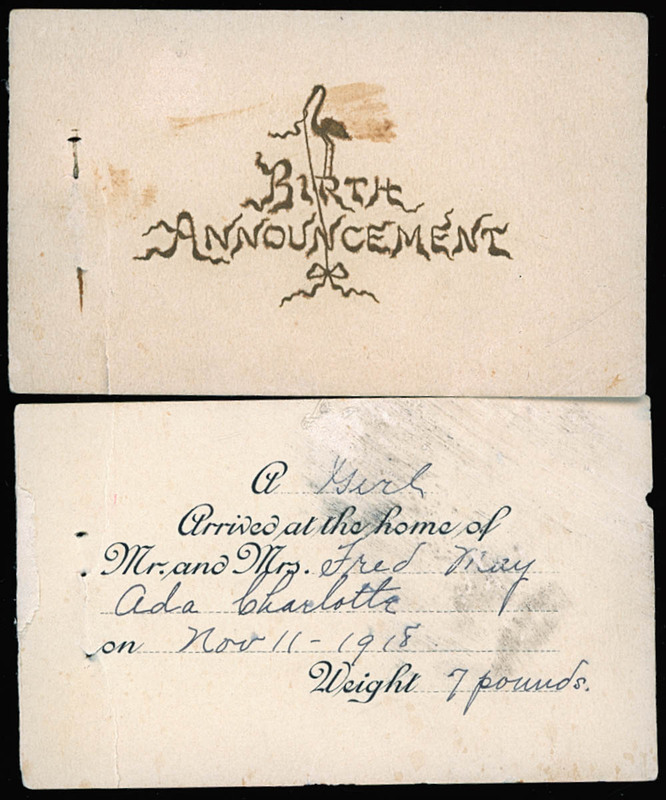 BIRTH
ANNOUNCEMENT
A Girl
Arrived at the home of
Mr. and Mrs. Fred May
Ada Charlotte
on Nov 11 - 1918
Weight 7 pounds.